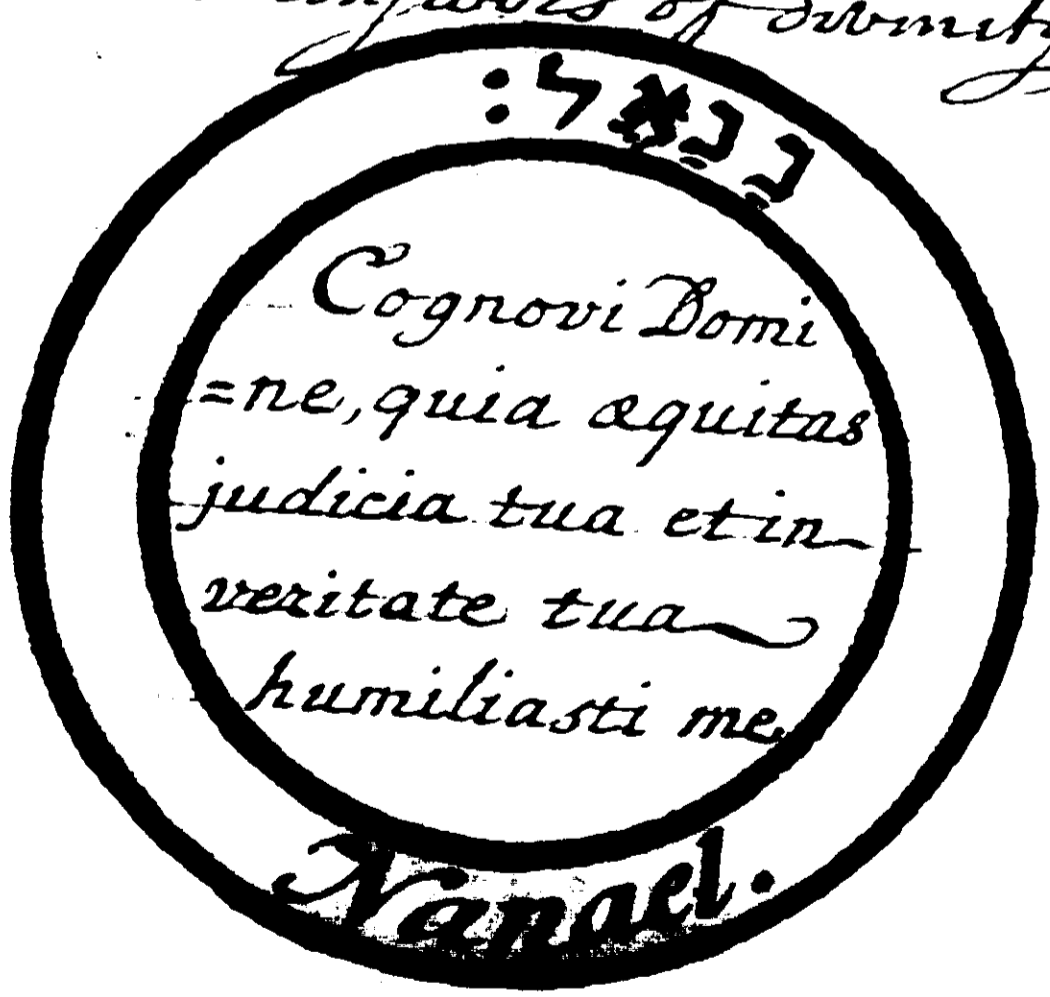 of divinity
נֵנַאֵל:
Cognovi Domi
=ne, quia æquitas
judicia tua et in
veritate tua
humiliasti me
Nanael.